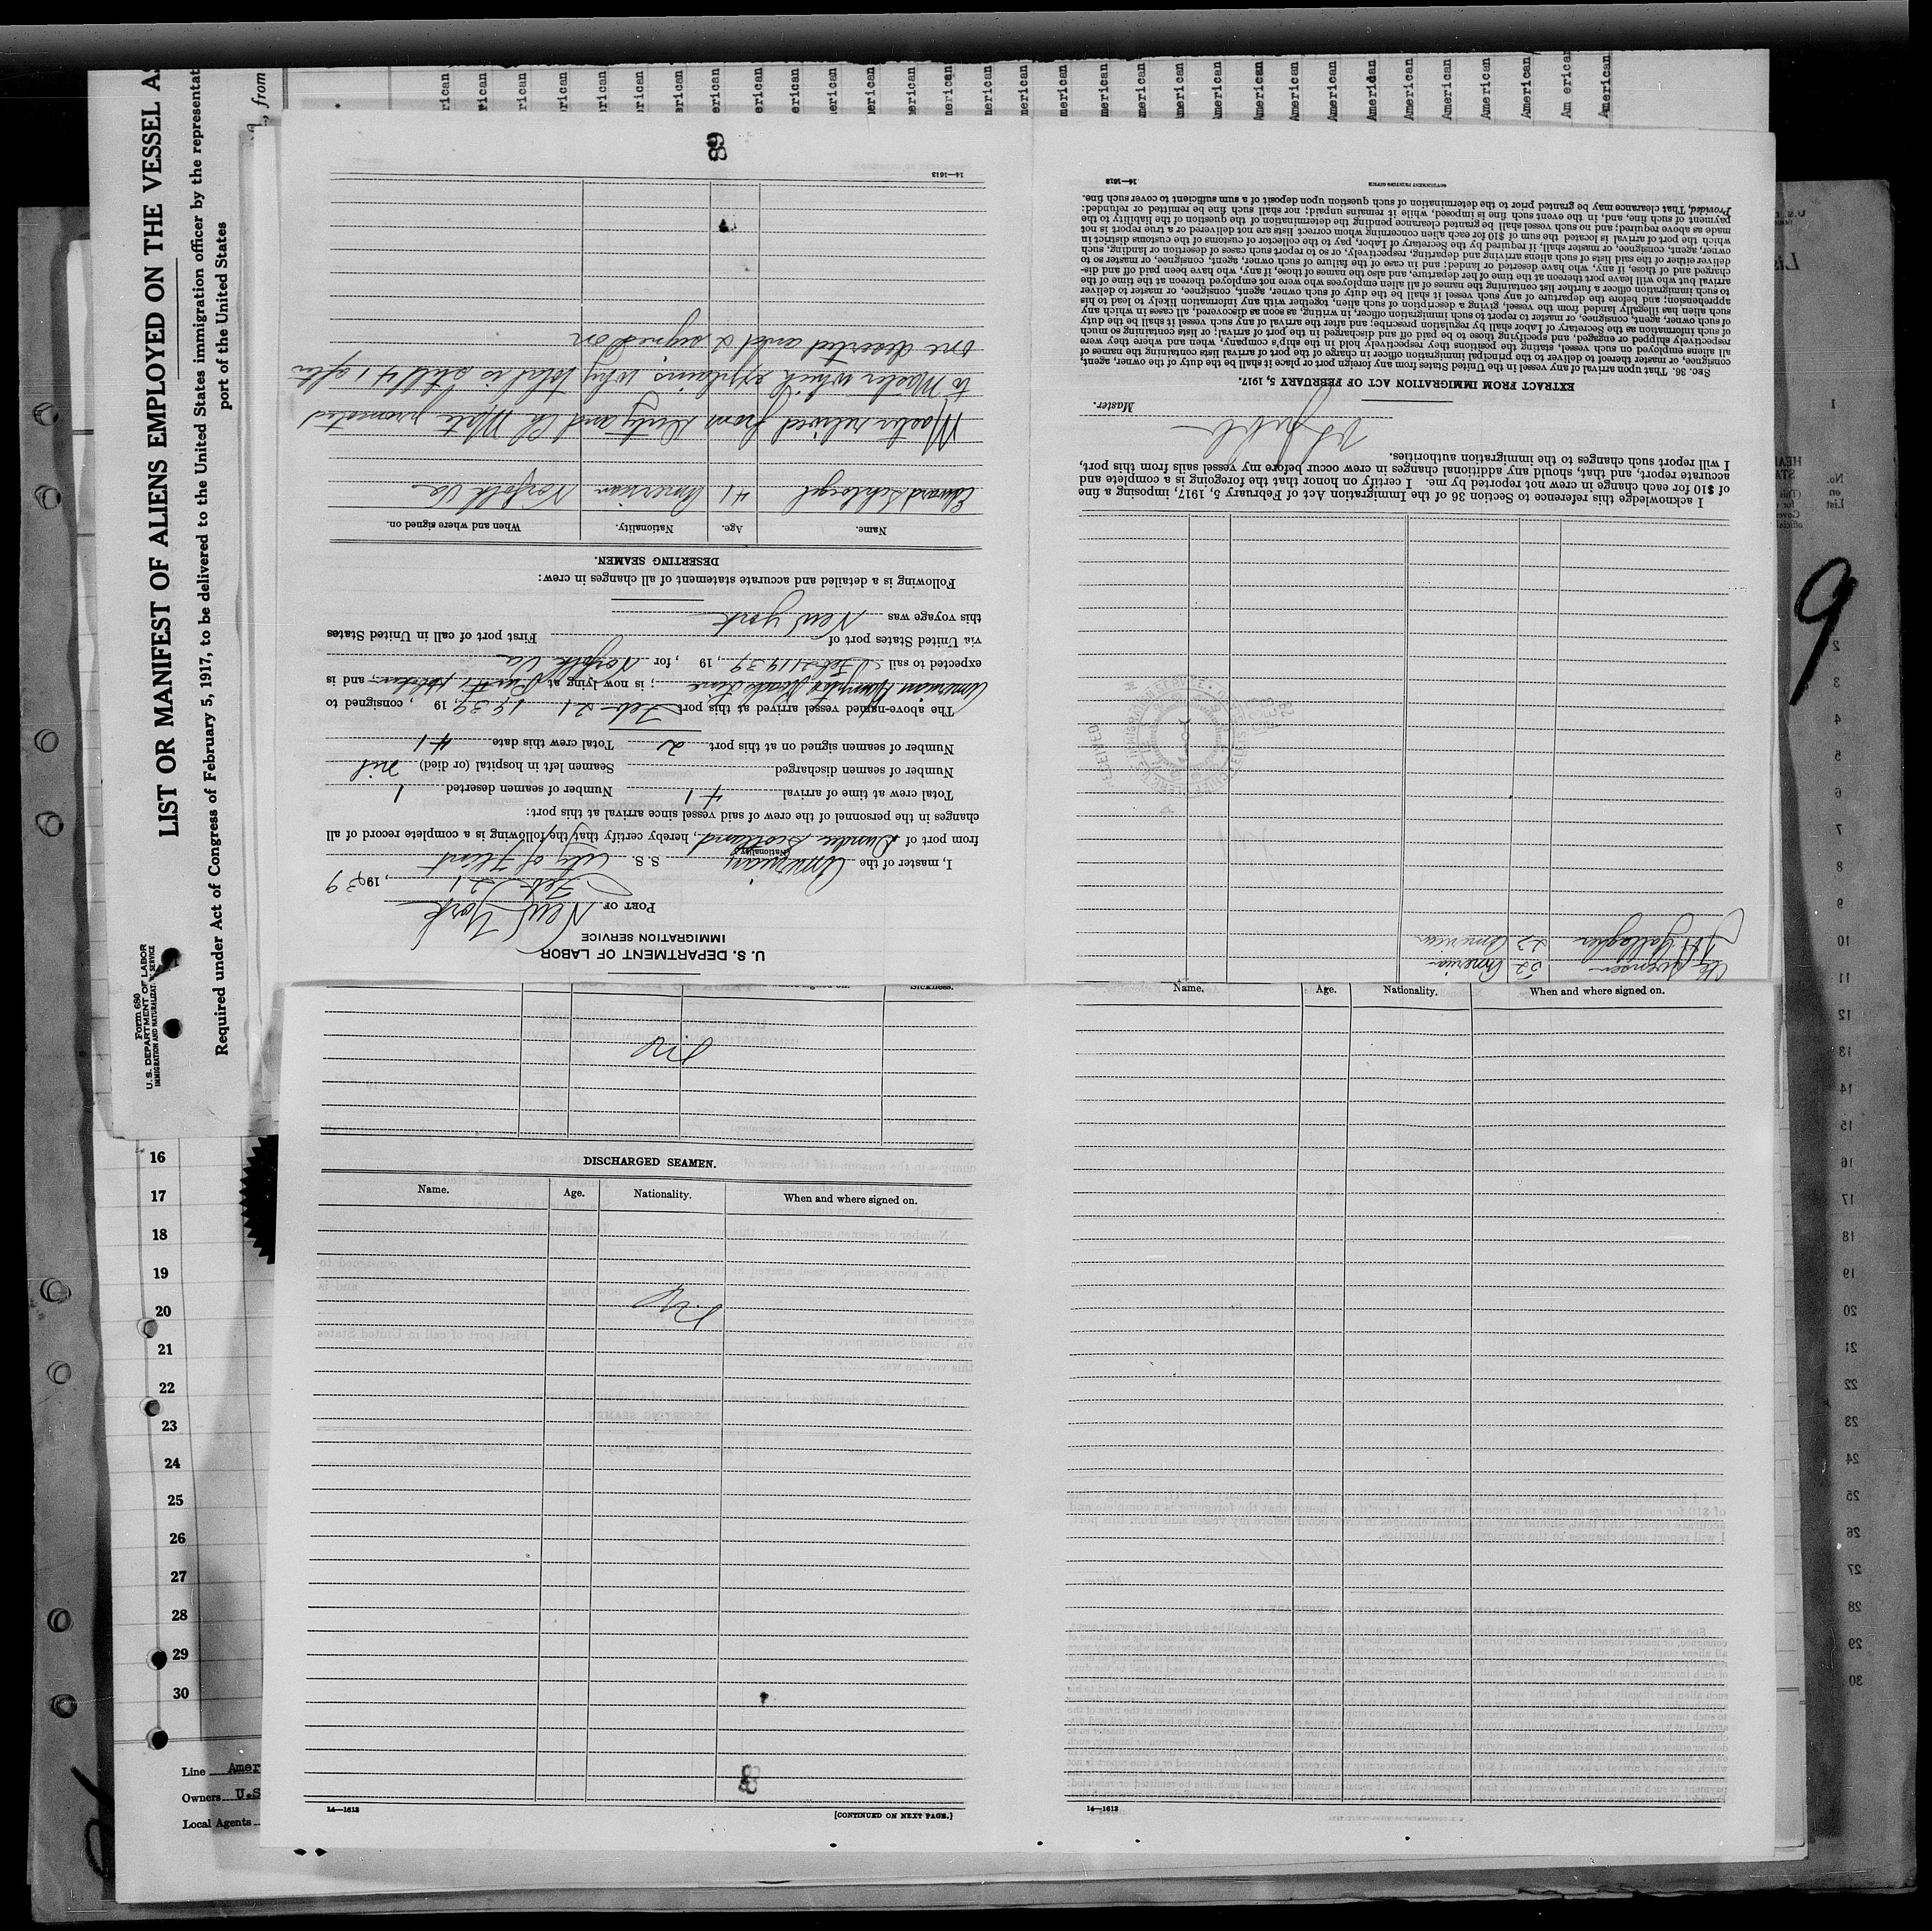 LIST OR MANIFEST OF ALIENS EMPLOYED ON THE VESSEL AS
Required under Act of Congress of February 5, 1917, to be delivered to the United States immigration officer by the representat
port of the United States
Form 680
U. S. DEPARTMENT OF LABOR
IMMIGRATION AND NATURALIZATION SERVICE
, from
rican
rican
rican
rican
rican
rican
erican
erican
erican
erican
erican
erican
erican
merican
merican
merican
merican
merican
American
American
American
American
American
American
American
American
American
American
American
Am erican
American
U. S. DEPARTMENT OF LABOR
IMMIGRATION SERVICE
PORT OF New York
Feb 21, 1939
I, master of the American S. S. City of Flint
(Nationality)
from port of Dundee Scotland, hereby certify that the following is a complete record of all
changes in the personnel of the crew of said vessel since arrival at this port:
Total crew at time of arrival 41 Number of seamen deserted 1
Number of seamen discharged Seamen left in hospital (or died) nil
Number of seamen signed on at this port 2 Total crew this date 41
The above-named vessel arrived at this port Feb 21 1939, 19 , consigned to
American Hampton Roads Line ; is now lying at Hoboken, and is
expected to sail Feb 21 1939, 19 , for Norfolk Va
via United States port of First port of call in United States
this voyage was New York
Following is a detailed and accurate statement of all changes in crew:
DESERTING SEAMEN.
Name. Age. Nationality. When and where signed on.
Edward Schloegel 41 American Norfolk Va
Master relieved from duty and Ch Mate promoted
to Master which explains why total is still 41 after
one deserted and 2 signed on
14—1613
Name. Age. Nationality. When and where signed on.
Svensen 52 American
J H Gallagher 22 American
I acknowledge this reference to Section 36 of the Immigration Act of February 5, 1917, imposing a fine
of $10 for each change in crew not reported by me. I certify on honor that the foregoing is a complete and
accurate report, and that, should any additional changes in crew occur before my vessel sails from this port,
I will report such changes to the immigration authorities.
Master.
EXTRACT FROM IMMIGRATION ACT OF FEBRUARY 5, 1917.
SEC. 36. That upon arrival of any vessel in the United States from any foreign port or place it shall be the duty of the owner, agent,
consignee, or master thereof to deliver to the principal immigration officer in charge of the port of arrival lists containing the names of
all aliens employed on such vessel, stating the positions they respectively hold in the ship's company, when and where they were
respectively shipped or engaged, and specifying those to be paid off and discharged in the port of arrival; or lists containing so much
of such information as the Secretary of Labor shall by regulation prescribe; and after the arrival of any such vessel it shall be the duty
of such owner, agent, consignee, or master to report to such immigration officer, in writing, as soon as discovered, all cases in which any
such alien has illegally landed from the vessel, giving a description of such alien, together with any information likely to lead to his
apprehension; and before the departure of any such vessel it shall be the duty of such owner, agent, consignee, or master to deliver
to such immigration officer a further list containing the names of all alien employees who were not employed thereon at the time of the
arrival but who will leave port thereon at the time of her departure, and also the names of those, if any, who have been paid off and dis-
charged and of those, if any, who have deserted or landed; and in case of the failure of such owner, agent, consignee, or master so to
deliver either of the said lists of such aliens arriving and departing, respectively, or so to report such cases of desertion or landing, such
owner, agent, consignee, or master shall, if required by the Secretary of Labor, pay to the collector of customs of the customs district in
which the port of arrival is located the sum of $10 for each alien concerning whom correct lists are not delivered or a true report is not
made as above required; and no such vessel shall be granted clearance pending the determination of the question of the liability to the
payment of such fine, and, in the event such fine is imposed, while it remains unpaid; nor shall such fine be remitted or refunded:
Provided, That clearance may be granted prior to the determination of such question upon deposit of a sum sufficient to cover such fine.
14—1613 GOVERNMENT PRINTING OFFICE
RECEIVED
nil
DISCHARGED SEAMEN.
Name. Age. Nationality. When and where signed on.
nil
14—1613 [CONTINUED ON NEXT PAGE.]
14—1613
16
17
18
19
20
21
22
23
24
25
26
27
28
29
30
Line Amer
Owners U.S
Local Agents
9
No.
on
List
1
2
3
4
5
6
7
8
9
10
11
12
13
14
15
16
17
18
19
20
21
22
23
24
25
26
27
28
29
30